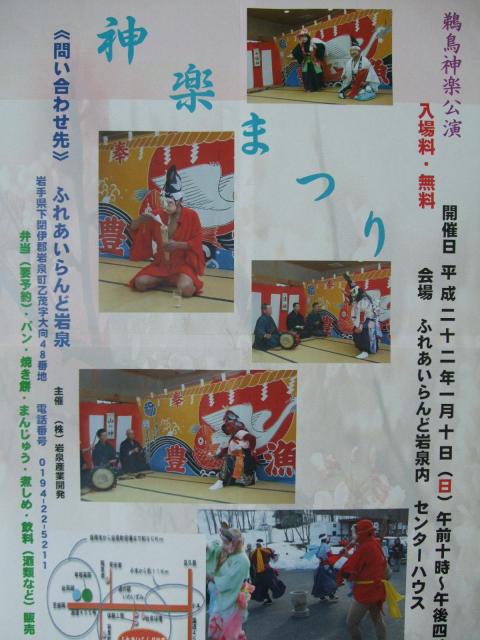 鵜鳥神楽公演
入場料・無料
神楽まつり
開催日 平成二十二年一月十日(日)午前十時〜午後四
会場 ふれあいらんど岩泉内 センターハウス
《問い合わせ先》 ふれあいらんど岩泉
岩手県下閉伊郡岩泉町乙茂字大向48番地 電話番号 0194-22-5211
主催 (株)岩泉産業開発
弁当(要予約)・パン・焼き餅・まんじゅう・煮しめ・飲料(酒類など)販売
奉
豊
奉
豊
漁